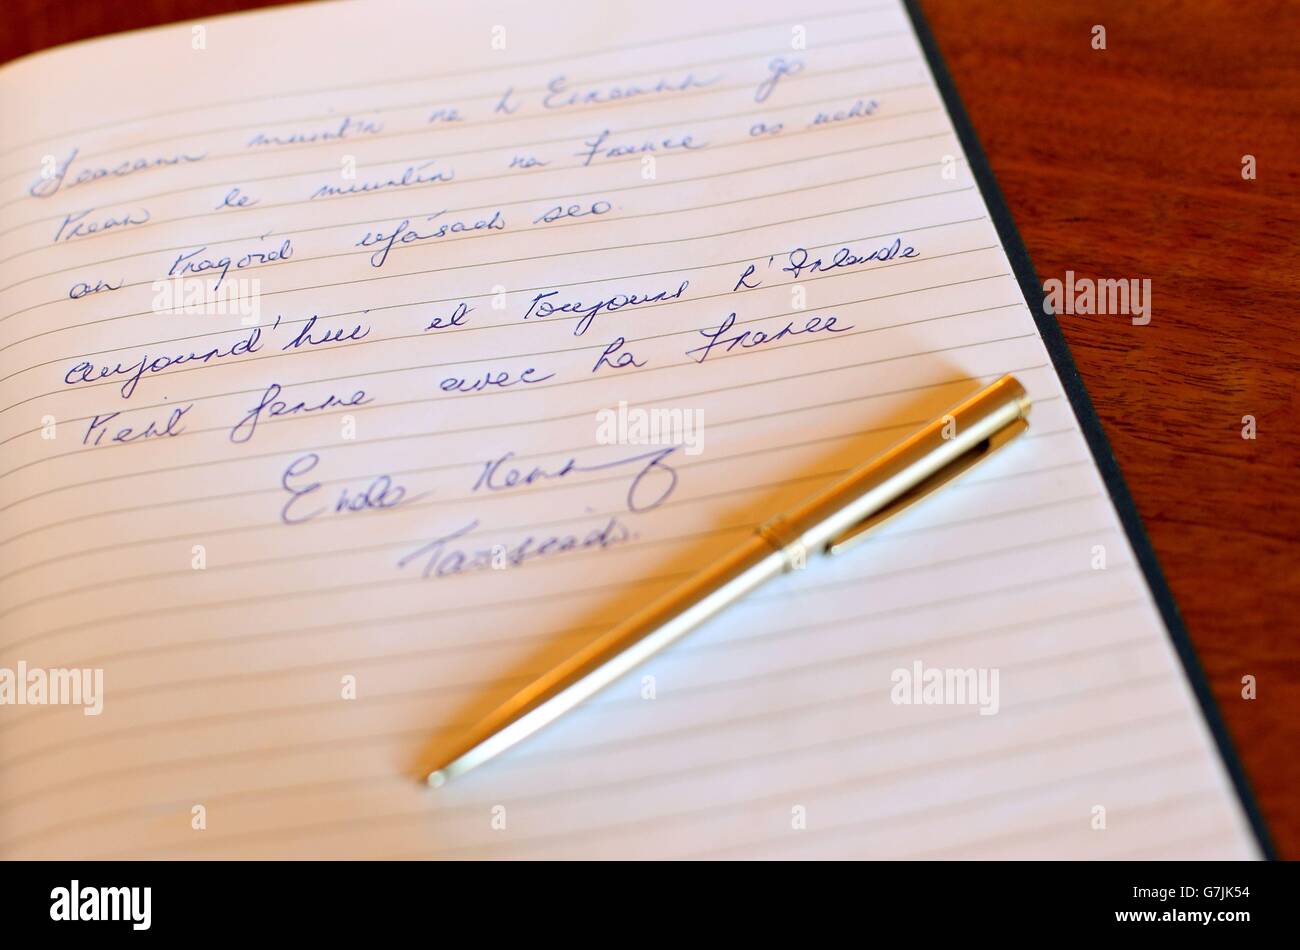 Seasann muintir na h Eireann go
trean le muintir na France as ucht
an tragóid uafásach seo.
aujourd'hui et toujours L'Irlande
tient ferme avec La France
Enda Kenny
Taoiseach.
alamy
Image ID: G7JK54
www.alamy.com